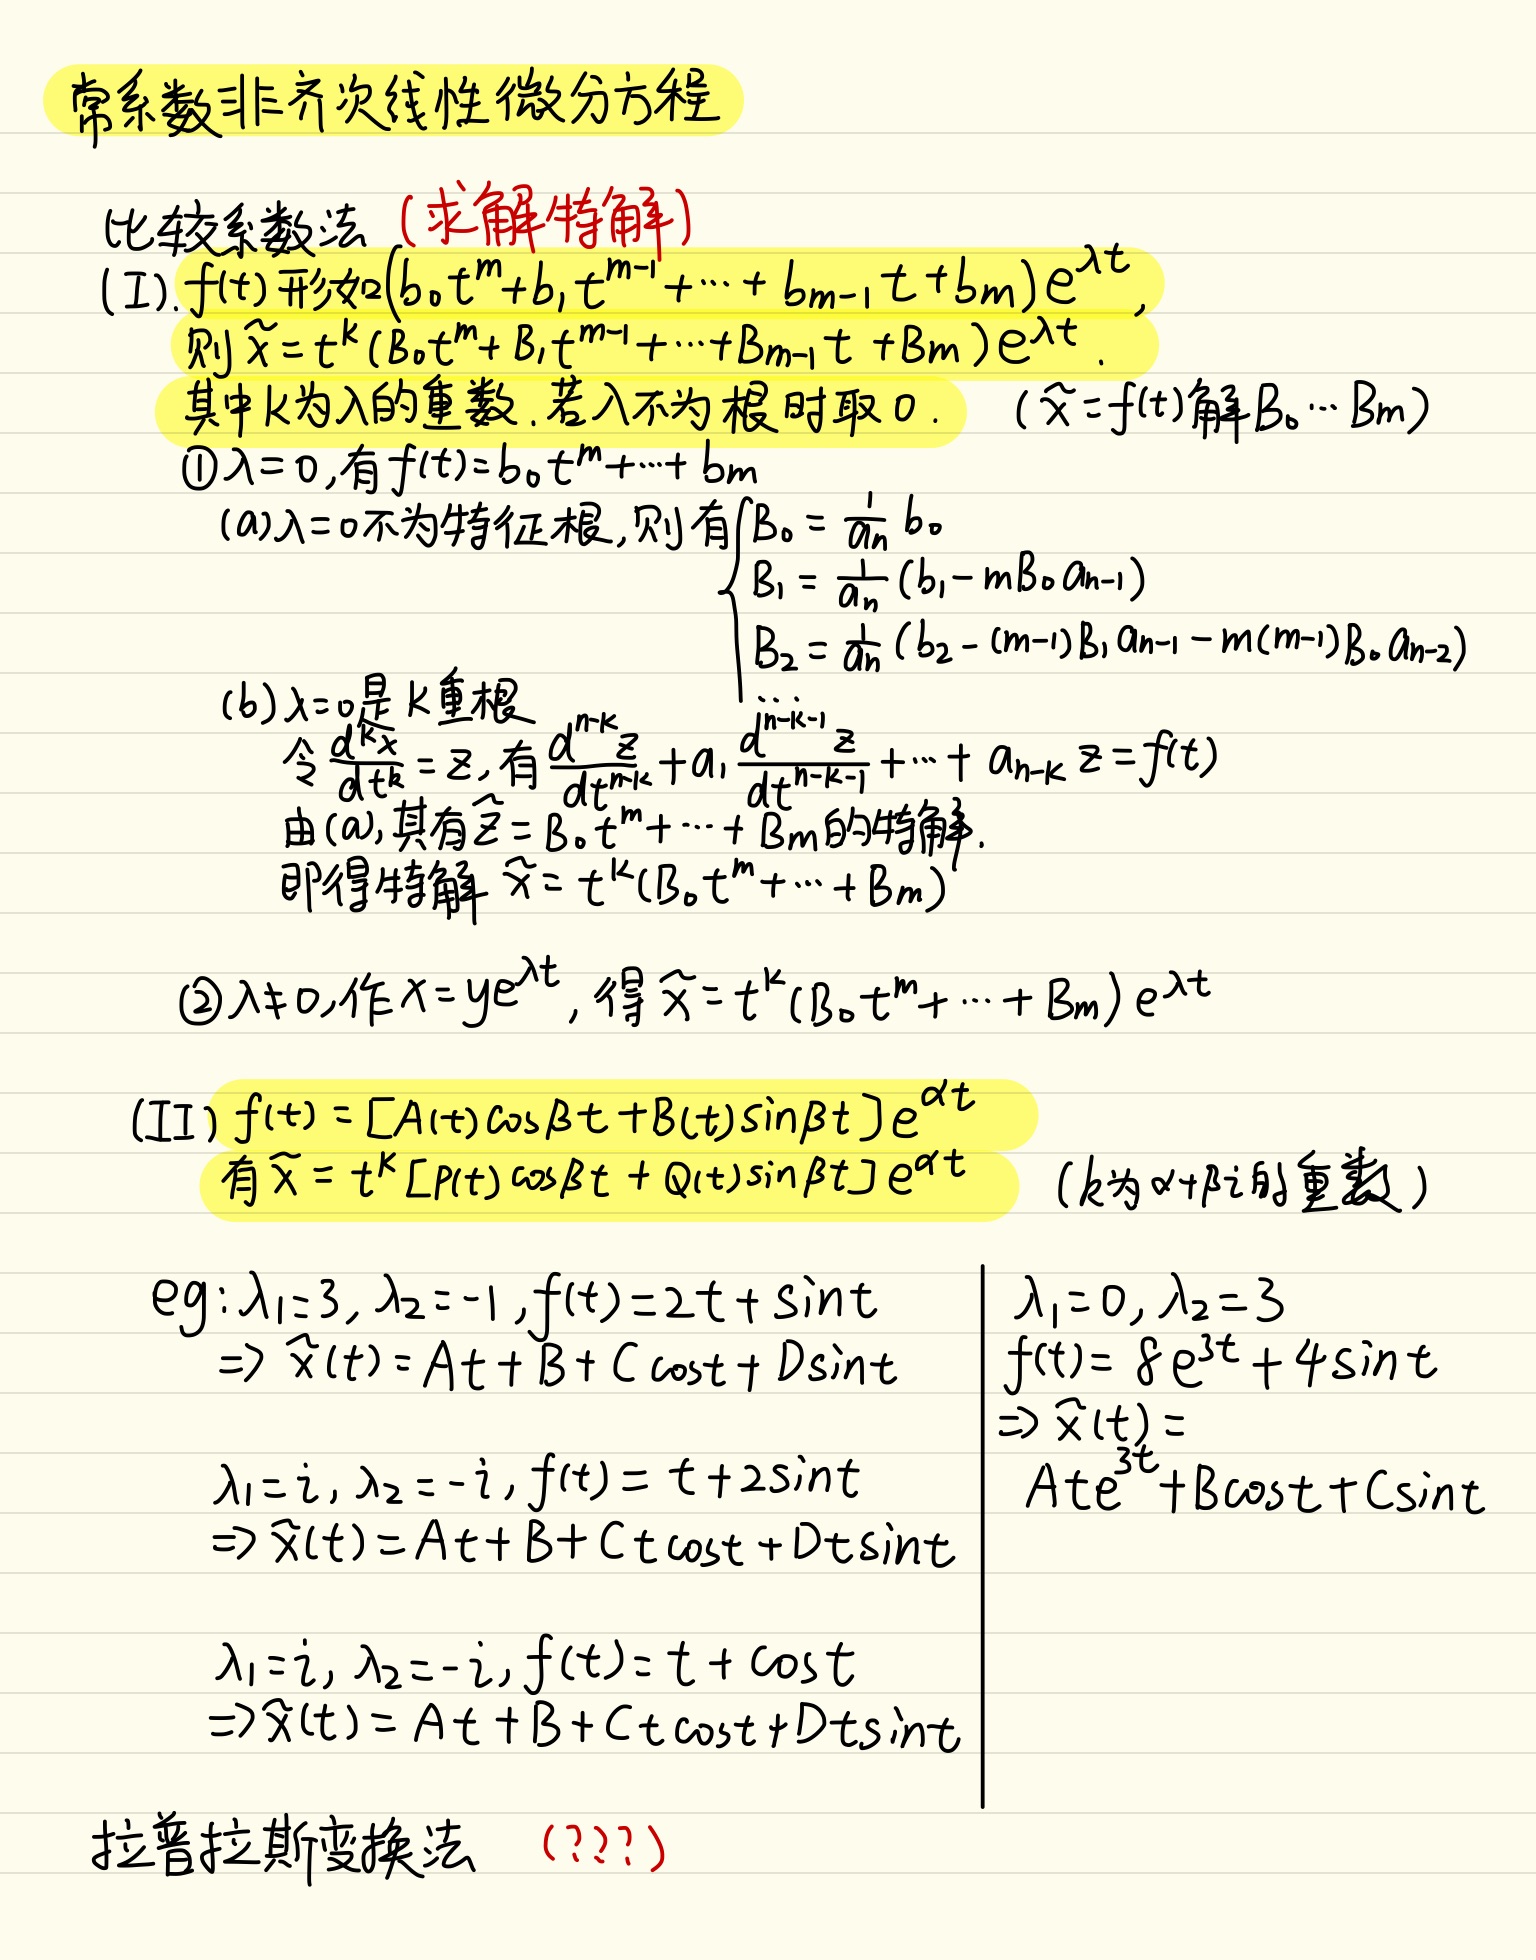 常系数非齐次线性微分方程
比较系数法 (求解特解)
(I). f(t) 形如(b₀tᵐ+b₁tᵐ⁻¹+⋯+bₘ₋₁t+bₘ)e^{λt},
则 x̃=tᵏ(B₀tᵐ+B₁tᵐ⁻¹+⋯+Bₘ₋₁t+Bₘ)e^{λt}.
其中k为λ的重数.若λ不为根时取0. (x̃=f(t)解B₀⋯Bₘ)
①λ=0,有f(t)=b₀tᵐ+⋯+bₘ
(a)λ=0不为特征根,则有{B₀=\frac{1}{aₙ}b₀
B₁=\frac{1}{aₙ}(b₁-mB₀aₙ₋₁)
B₂=\frac{1}{aₙ}(b₂-(m-1)B₁aₙ₋₁-m(m-1)B₀aₙ₋₂)
⋯
(b)λ=0是k重根
令\frac{dᵏx}{dtᵏ}=z,有\frac{dⁿ⁻ᵏz}{dtⁿ⁻ᵏ}+a₁\frac{dⁿ⁻ᵏ⁻¹z}{dtⁿ⁻ᵏ⁻¹}+⋯+aₙ₋ₖz=f(t)
由(a),其有z̃=B₀tᵐ+⋯+Bₘ的特解.
即得特解 x̃=tᵏ(B₀tᵐ+⋯+Bₘ)
②λ≠0,作x=ye^{λt},得x̃=tᵏ(B₀tᵐ+⋯+Bₘ)e^{λt}
(II) f(t)=[A(t)cosβt+B(t)sinβt]e^{αt}
有x̃=tᵏ[P(t)cosβt+Q(t)sinβt]e^{αt} (k为α+βi的重数)
eg:λ₁=3,λ₂=-1,f(t)=2t+sint
⇒ x̃(t)=At+B+Ccost+Dsint
λ₁=i,λ₂=-i,f(t)=t+2sint
⇒ x̃(t)=At+B+Ctcost+Dtsint
λ₁=i,λ₂=-i,f(t)=t+cost
⇒x̃(t)=At+B+Ctcost+Dtsint
λ₁=0,λ₂=3
f(t)=8e^{3t}+4sint
⇒ x̃(t)=
Ate^{3t}+Bcost+Csint
拉普拉斯变换法 (???)